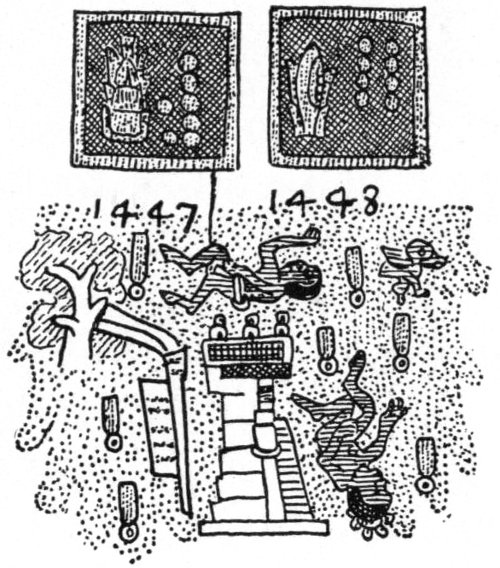 1447 1448